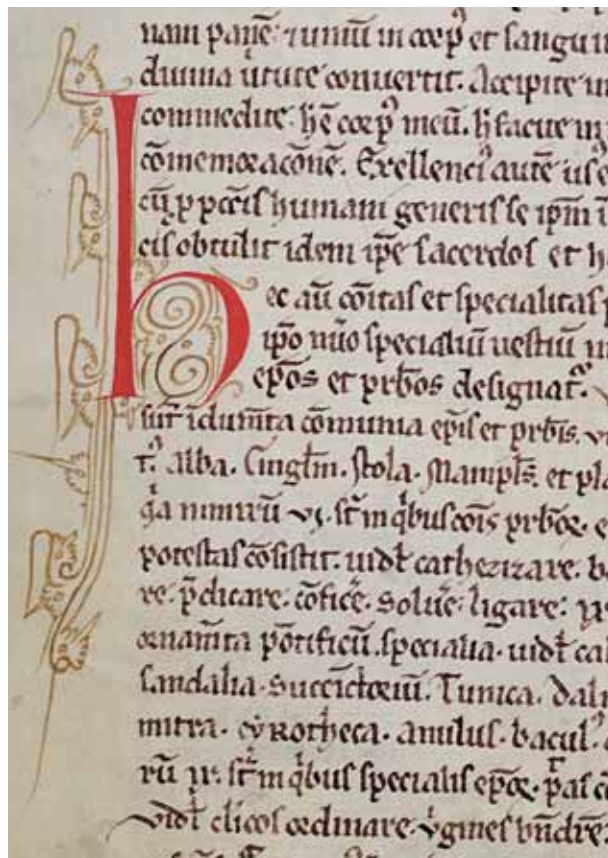 nam panē ⁊ uinū in corpꝰ et sangui
diuina uirtute conuertit. Accipite
commedite. hē corpꝰ meū. h facite in
cōmemoracōnē. Exellenciꝰ autē
cū p pcc̄is humani generis se ipm̄
cis obtulit idem ip̄e sacerdos et h
hec aū cōitas et specialitas
ip̄o nūo specialiū uestiū
ep̄os et prb̄os designatᷣ.
sūt īdumīta cōmunia ep̄is et prb̄is.
alba. Cingl̄m. Stola. Manipl̄s. et pla
vj. sūt in qͥbus cōis prb̄oꝝ.
potestas cōsistit. uidꝫ catheziʒare. b
re. p̄dicare. cōfic̄e. soluē. ligare.
ornamīta pōtificū specialia. uidꝫ cal
sandalia. Succīctoriū. Tunica. Dal
mitra. cyrotheca. anulus. baculꝰ.
rū ix. sūt in qͥbus specialis ep̄oꝝ. p̄as
uidꝫ clicos ordinare. vͥgines bn̄dr̄e.